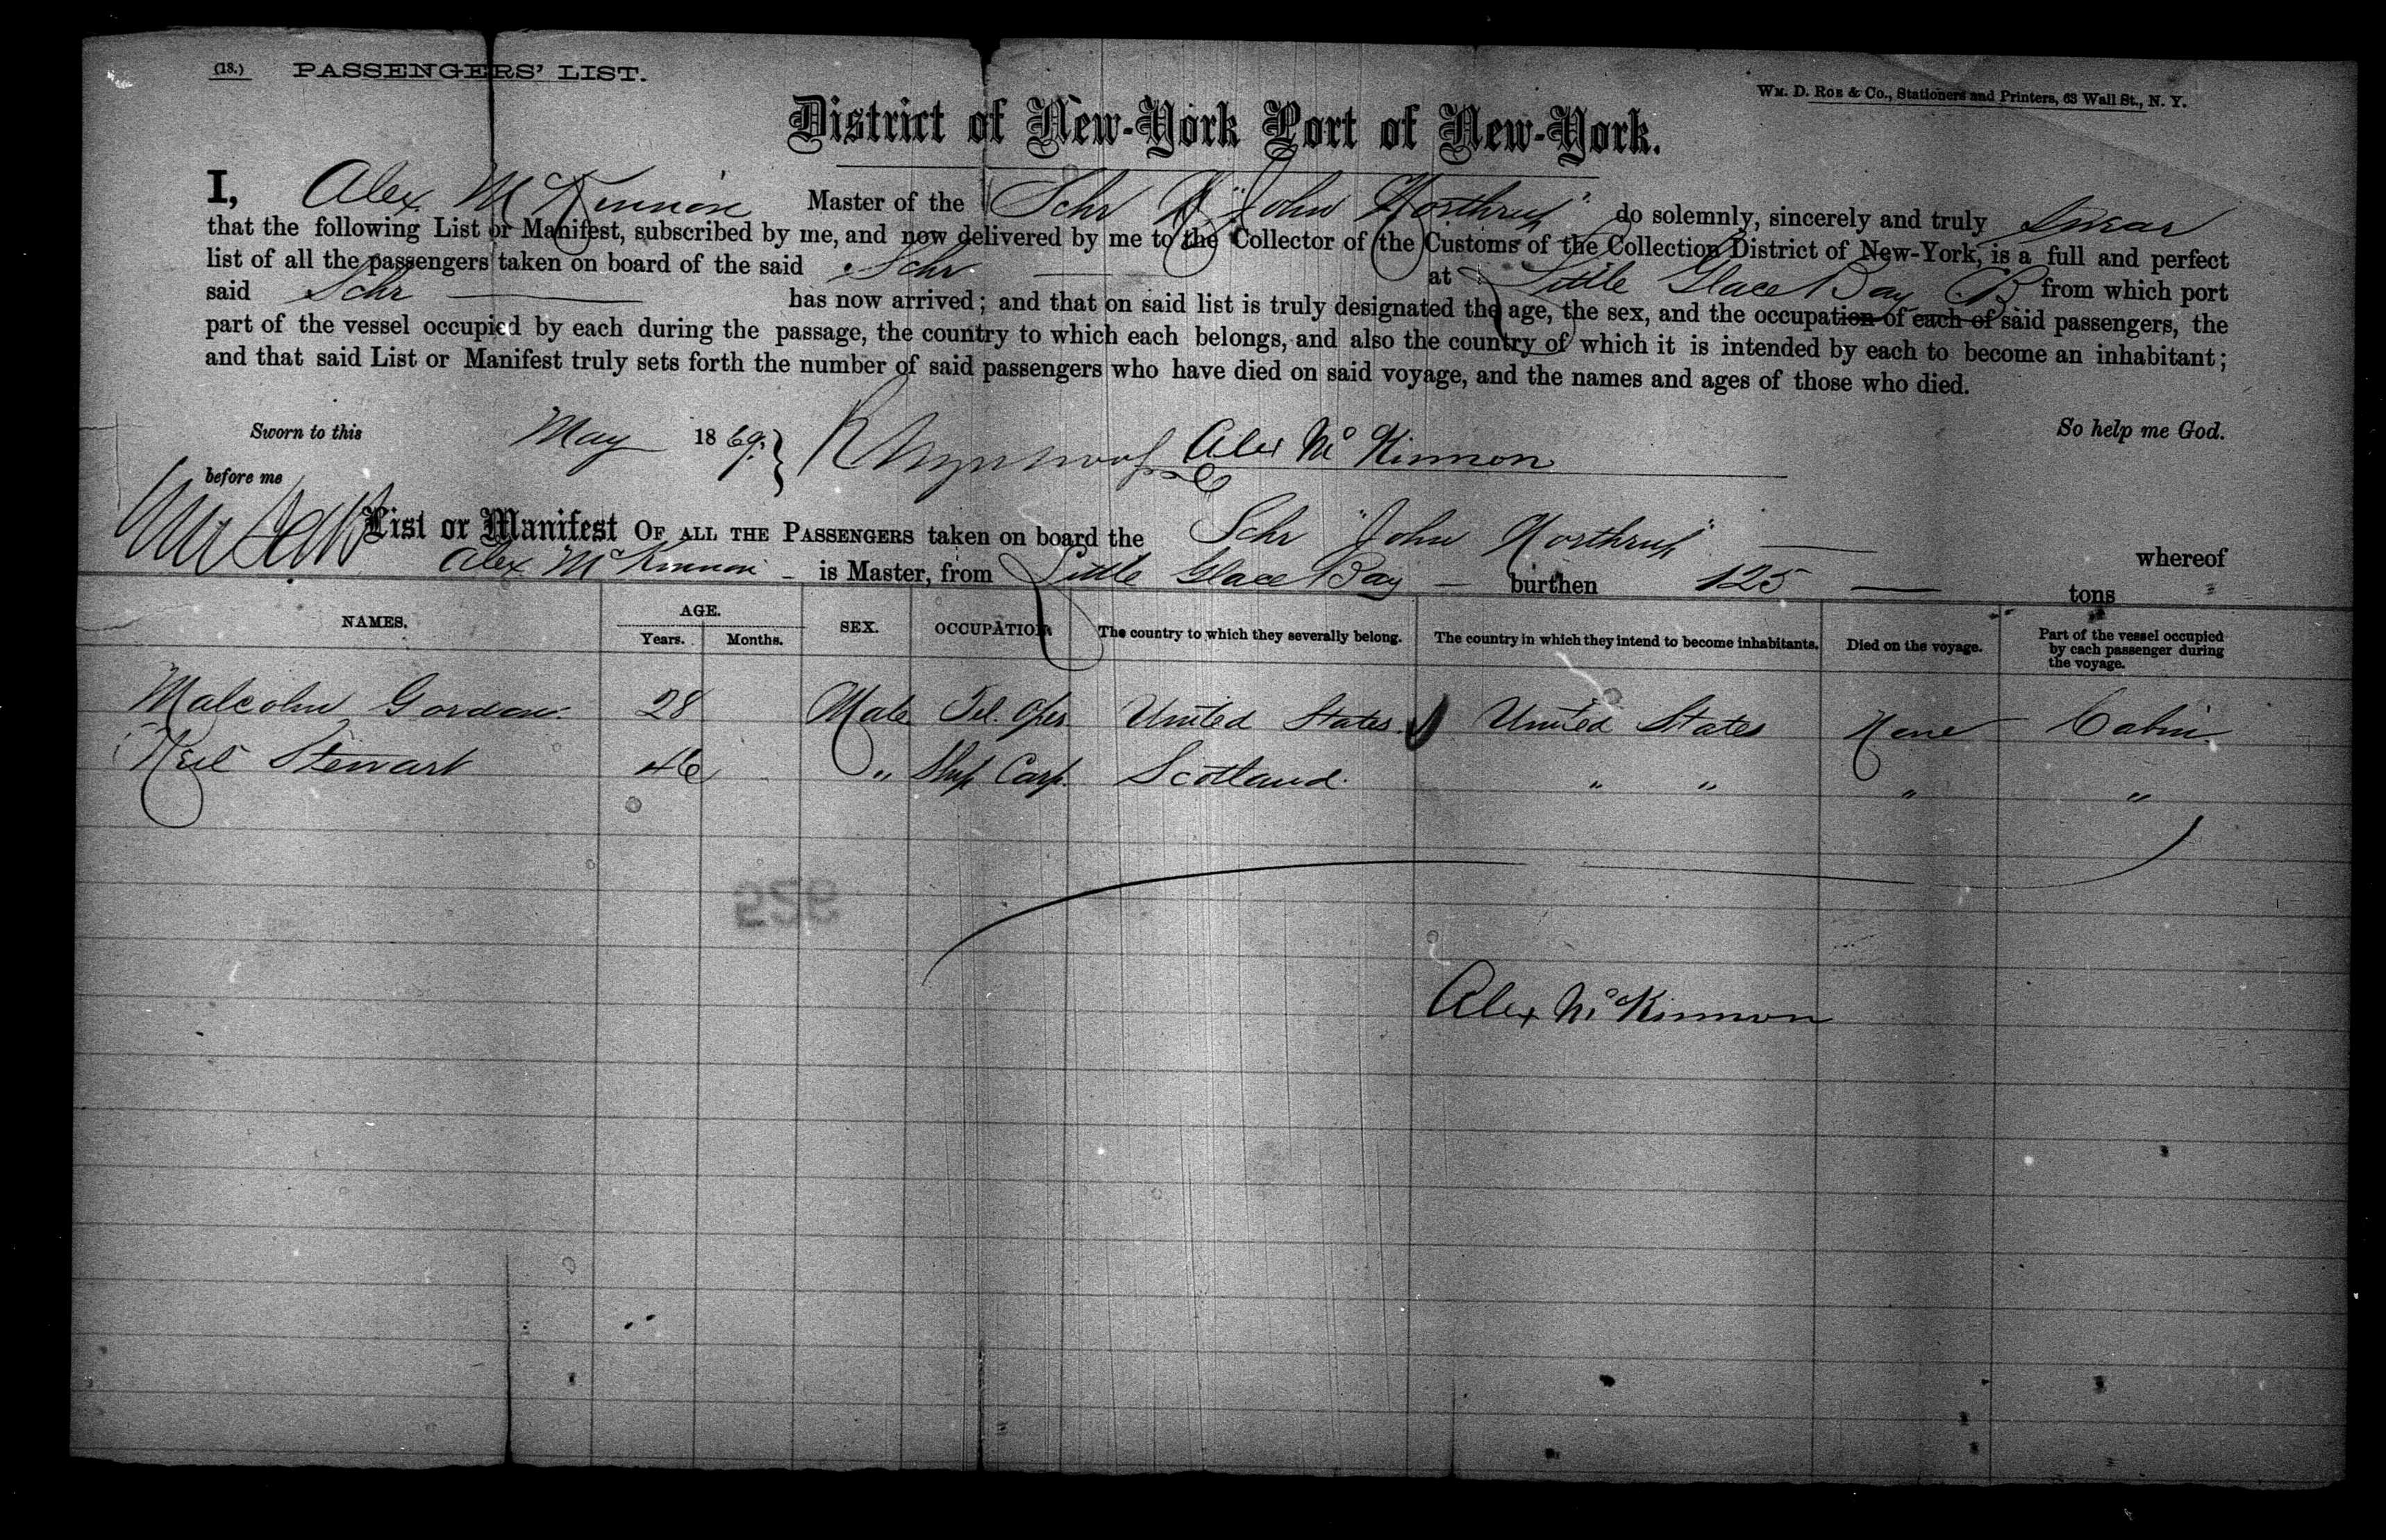 (18.) PASSENGERS' LIST.
Wm. D. Roe & Co., Stationers and Printers, 63 Wall St., N. Y.
District of New-York Port of New-York.
I, Alex McKinnon Master of the Schr "John Northrup" do solemnly, sincerely and truly Swear
that the following List or Manifest, subscribed by me, and now delivered by me to the Collector of the Customs of the Collection District of New-York, is a full and perfect
list of all the passengers taken on board of the said Schr at Little Glace Bay CB from which port
said Schr has now arrived; and that on said list is truly designated the age, the sex, and the occupation of each of said passengers, the
part of the vessel occupied by each during the passage, the country to which each belongs, and also the country of which it is intended by each to become an inhabitant;
and that said List or Manifest truly sets forth the number of said passengers who have died on said voyage, and the names and ages of those who died.
Sworn to this May 1869. Alex McKinnon So help me God.
before me
List or Manifest OF ALL THE PASSENGERS taken on board the Schr "John Northrup" whereof
Alex McKinnon is Master, from Little Glace Bay burthen 125 tons
NAMES. AGE. SEX. OCCUPATION The country to which they severally belong. The country in which they intend to become inhabitants. Died on the voyage. Part of the vessel occupied by each passenger during the voyage.
Years. Months.
Malcolm Gordon. 28 Male Tel. Oper United States United States None Cabin
Neil Stewart 46 " Ship Carp. Scotland. " " " "
929
Alex McKinnon